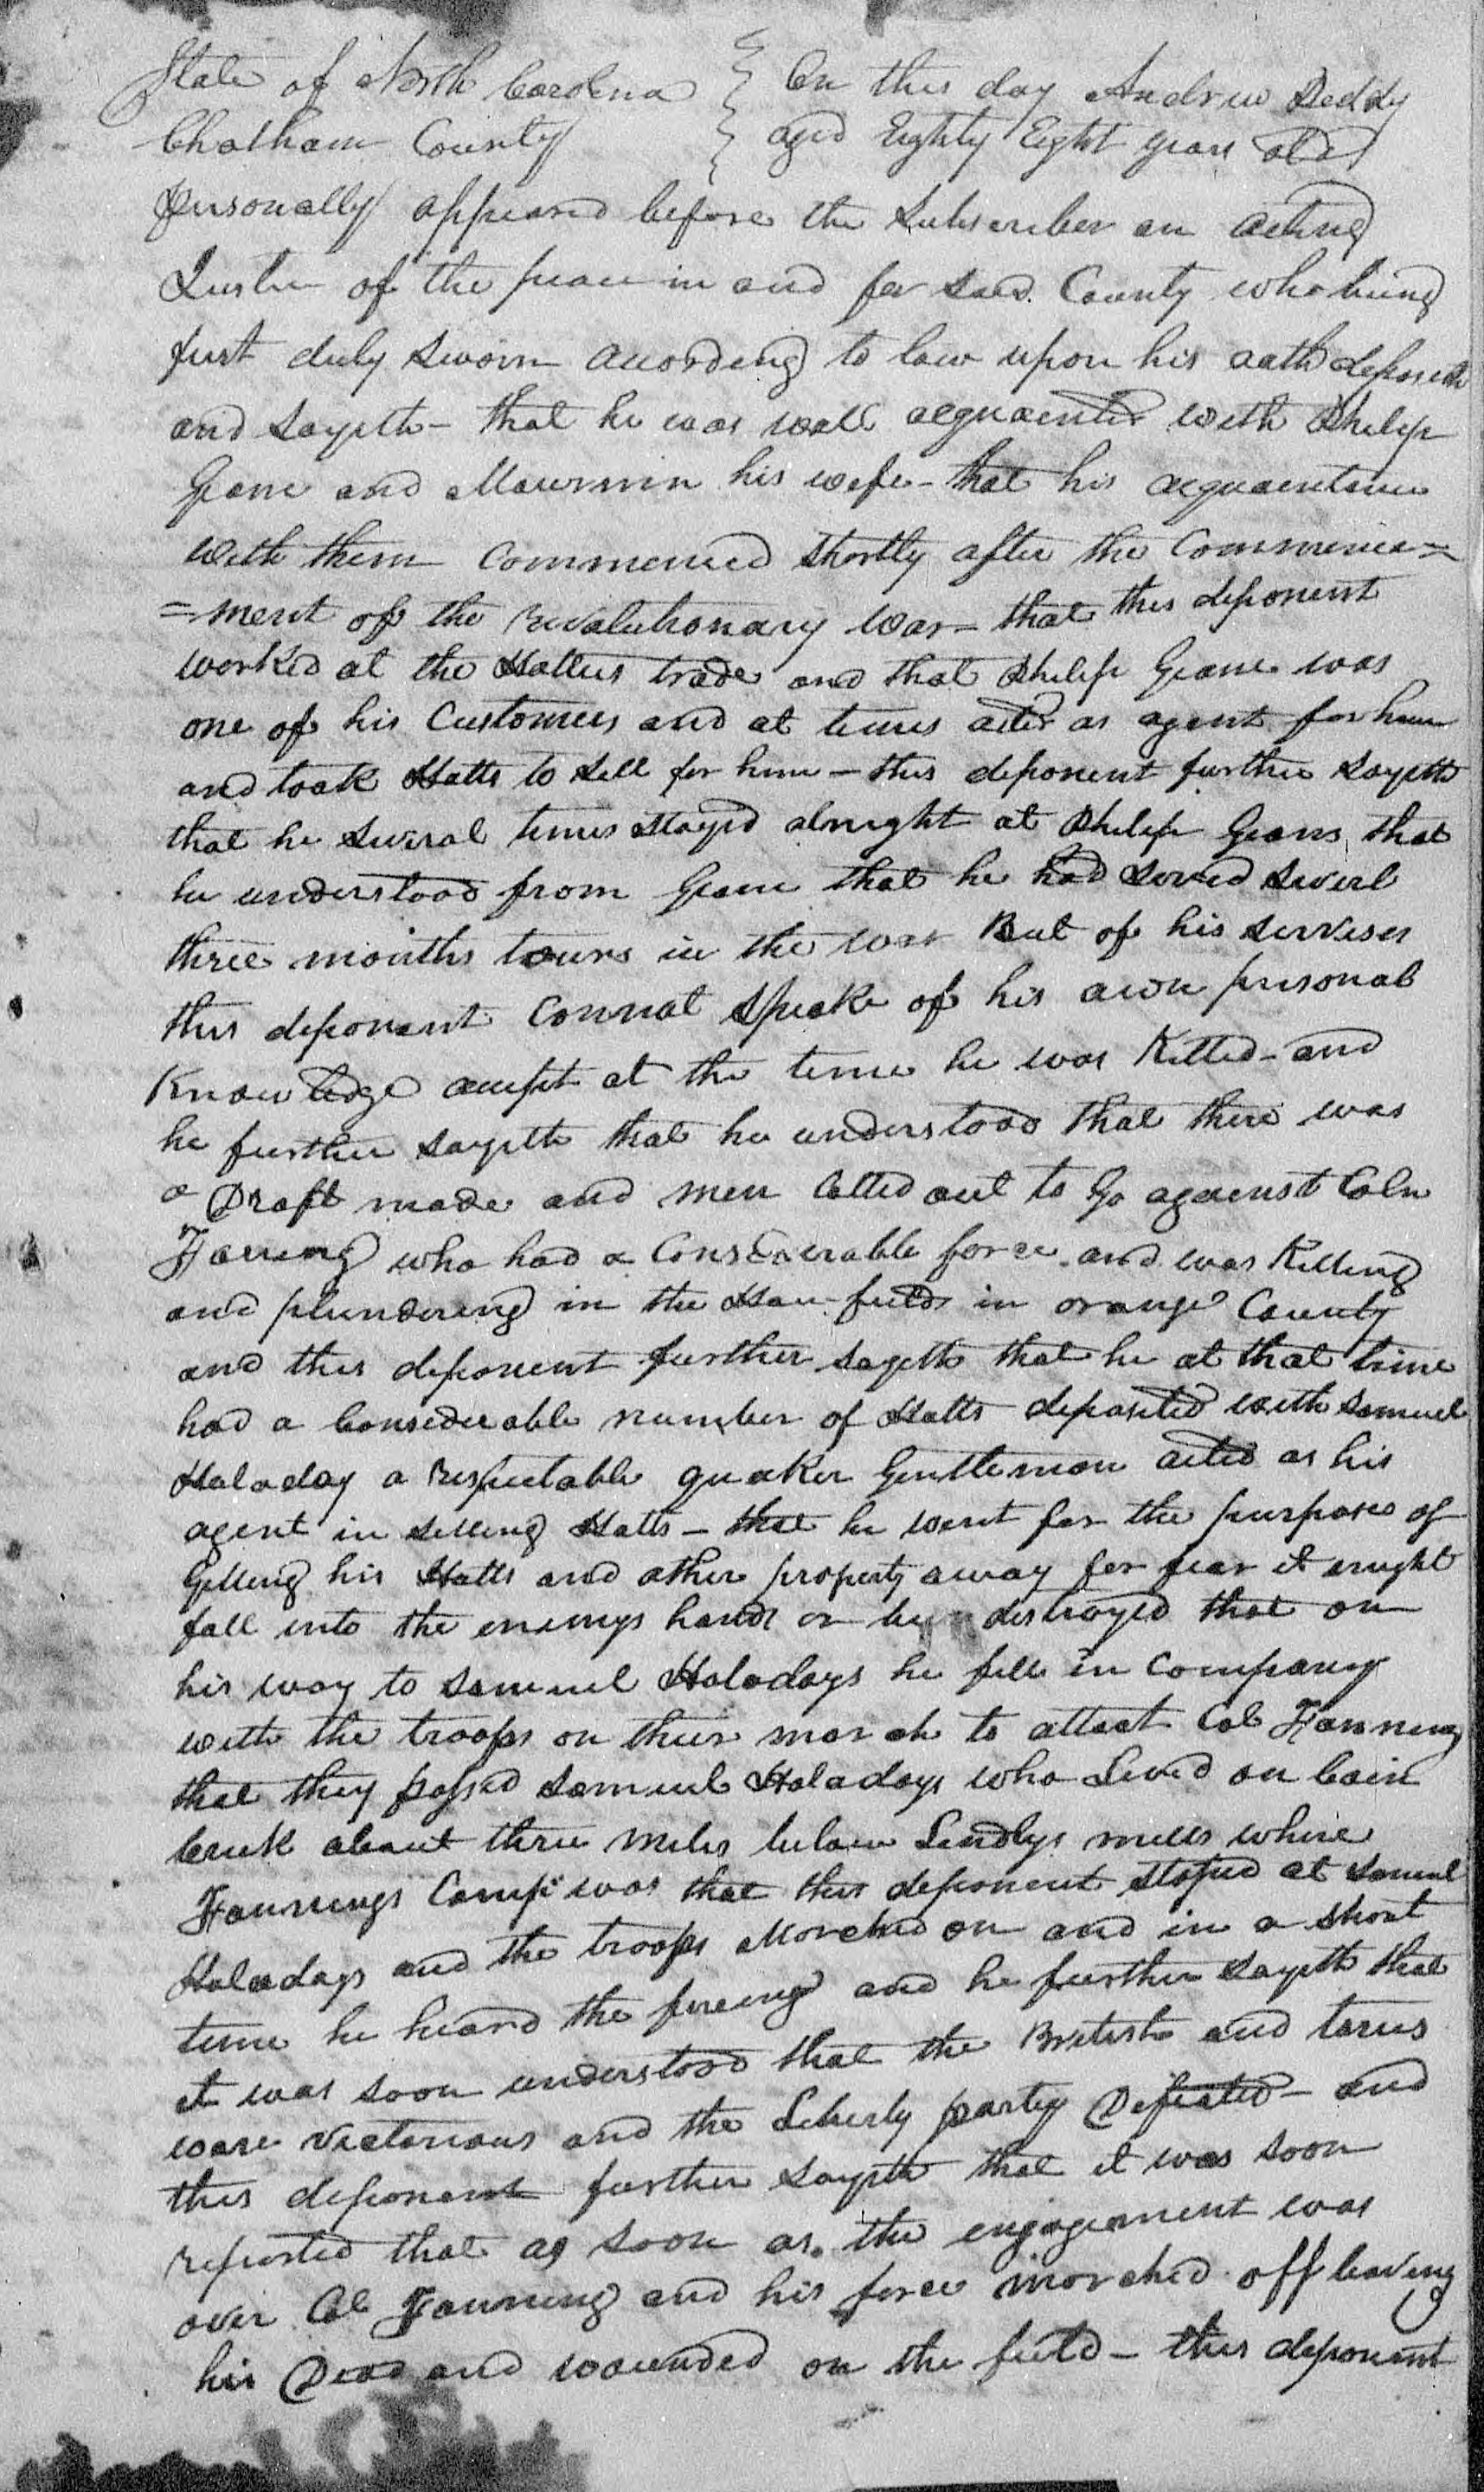 State of North Carolina } On this day Andrew Peddy
Chatham County } aged Eighty Eight years old
personally appeared before the Subscriber an acting
Justice of the peace in and for said County who being
first duly sworn according to law upon his oath deposeth
and sayeth - that he was well acquainted with Philip
Geane and Mournin his wife - that his acquaintance
with them commenced shortly after the Commence=
=ment of the revalutionary war - that this deponent
worked at the Hatters trade and that Philip Geane was
one of his Customers and at times acted as agent for him
and took Hatts to sell for him - this deponent further sayeth
that he several times stayed alnight at Philip Geans, that
he understood from Geane that he had served severl
three months tours in the war But of his services
this deponent Connot speake of his own personal
Knowledge except at the time he was Killed - and
he further sayeth that he understood that there was
a Draft made and men Called out to Go against Coln
Fanning who had a Considerable force and was Killing
and plundering in the Haw-fields in orange County
and this deponent further sayeth that he at that time
had a Considerable number of Hatts deposited with Samuel
Haladay a respectable quaker Gentleman acted as his
agent in selling Hatts - that he went for the purpose of
Getting his Hatts and other property away for fear it might
fall into the enemys hands or be destroyed that on
his way to Samuel Haladays he fell in Company
with the troops on their march to attact Col Fanning
that they passed Samuel Haladays who Lived on Cain
Creek about three miles below Lindlys mills where
Fannings Camp was that this deponent stoped at Samuel
Haladays and the troops Marched on and in a short
time he heard the fireing and he further sayeth that
it was soon understood that the British and tories
ware victorious and the Liberty party Defeated - and
this deponent further sayeth that it was soon
reported that as soon as the engagement was
over Col Fanning and his force marched off leaving
his Dead and wounded on the field - this deponent